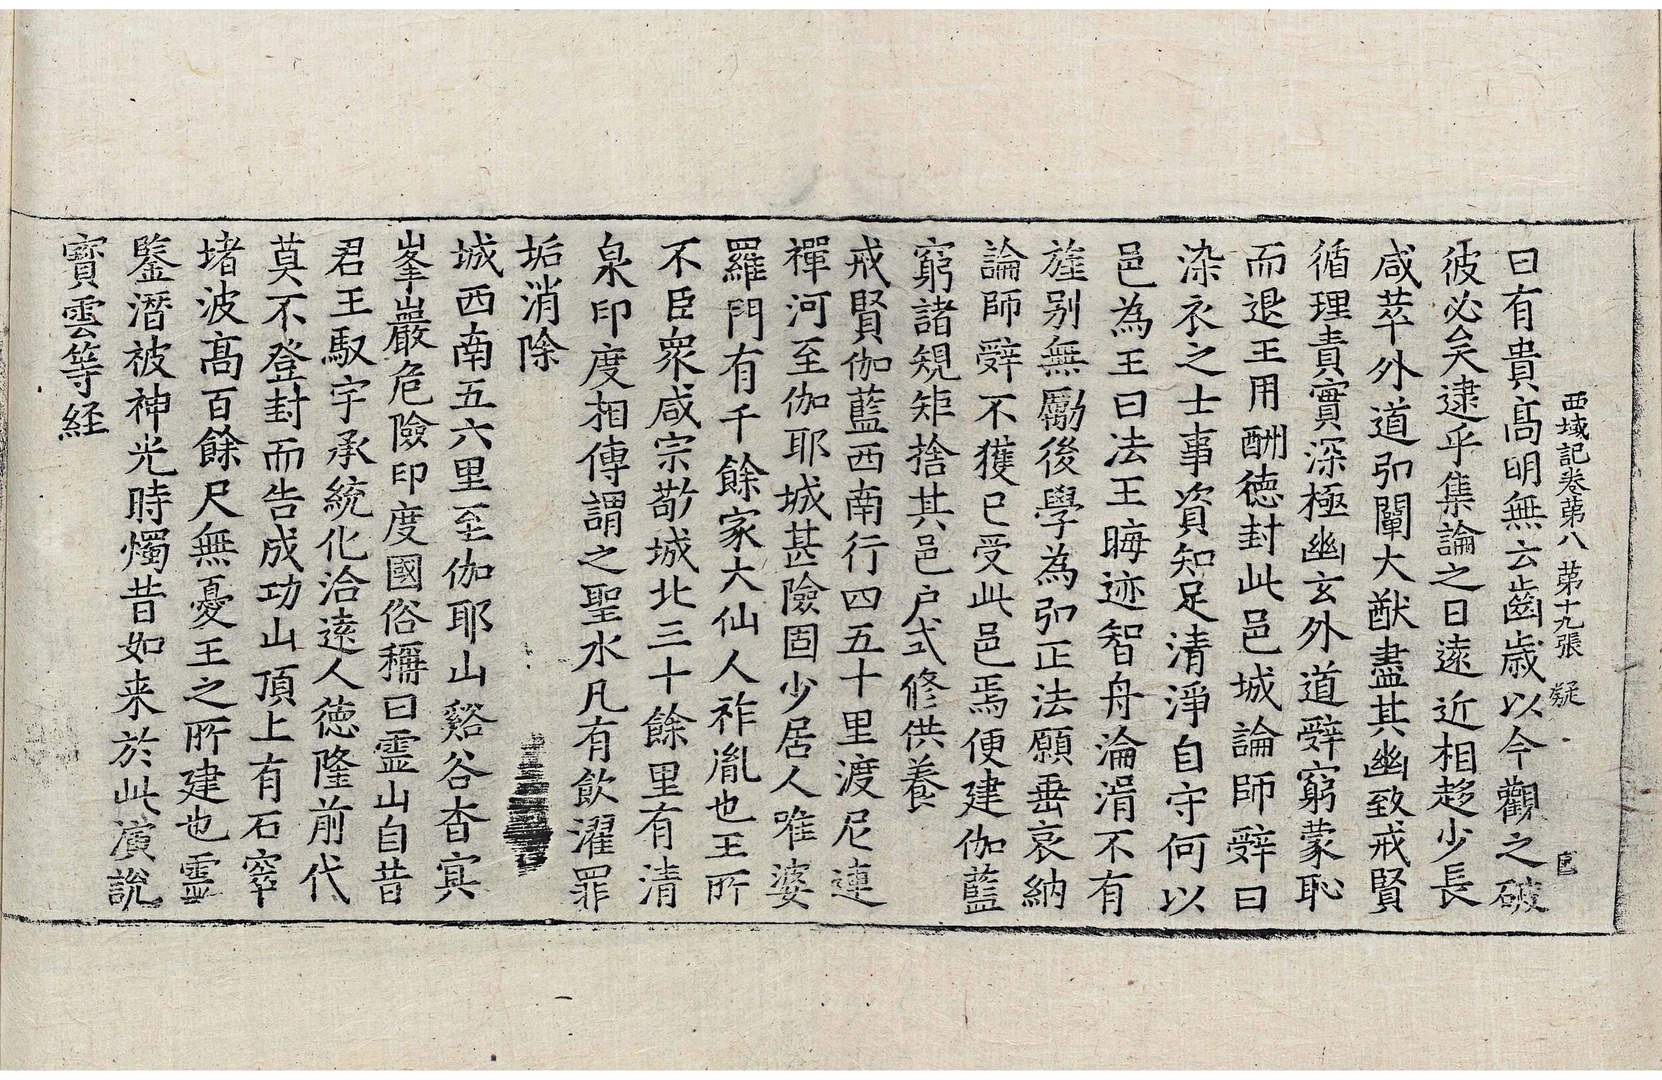 西域記卷第八 第十九張 疑
曰有貴髙明無云齒歳以今觀之破
彼必矣逮乎集論之日遠近相趍少長
咸萃外道弘闡大猷盡其幽致戒賢
循理責實深極幽玄外道辝窮蒙恥
而退王用酬德封此邑城論師辝曰
染衣之士事資知足清淨自守何以
邑為王曰法王晦迹智舟淪湑不有
旌别無勵後學為弘正法願垂哀納
論師辝不獲已受此邑焉便建伽藍
窮諸規矩捨其邑户式修供養
戒賢伽藍西南行四五十里渡尼連
禪河至伽耶城甚險固少居人唯婆
羅門有千餘家大仙人祚胤也王所
不臣衆咸宗敬城北三十餘里有清
泉印度相傳謂之聖水凡有飲濯罪
垢消除
城西南五六里至伽耶山谿谷杳㝠
峯巖危險印度國俗稱曰靈山自昔
君王馭宇承統化洽遠人德隆前代
莫不登封而告成功山頂上有石窣
堵波髙百餘尺無憂王之所建也靈
鑒潛被神光時燭昔如来於此演説
寳雲等経